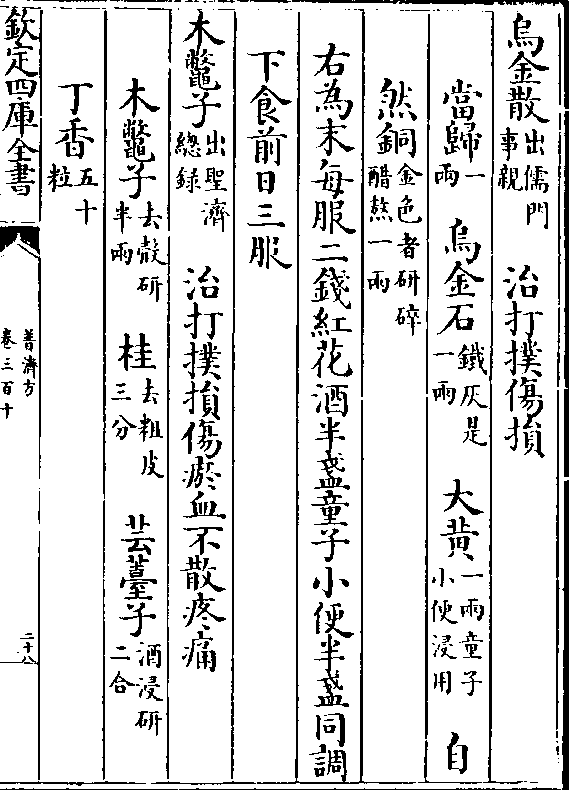 烏金散出儒門事親　治打撲傷損
當歸一兩　烏金石鐵灰是一兩　大黄一兩童子小便浸用　自
然銅金色者研碎醋熬一兩
右為末每服二錢紅花酒半盞童子小便半盞同調
下食前日三服
木鼈子出聖濟總錄　治打撲損傷瘀血不散疼痛
木鼈子去殻研半兩　桂去粗皮三分　芸薹子酒浸研二合
丁香五十粒
欽定四庫全書
普濟方
卷三百十
二十八